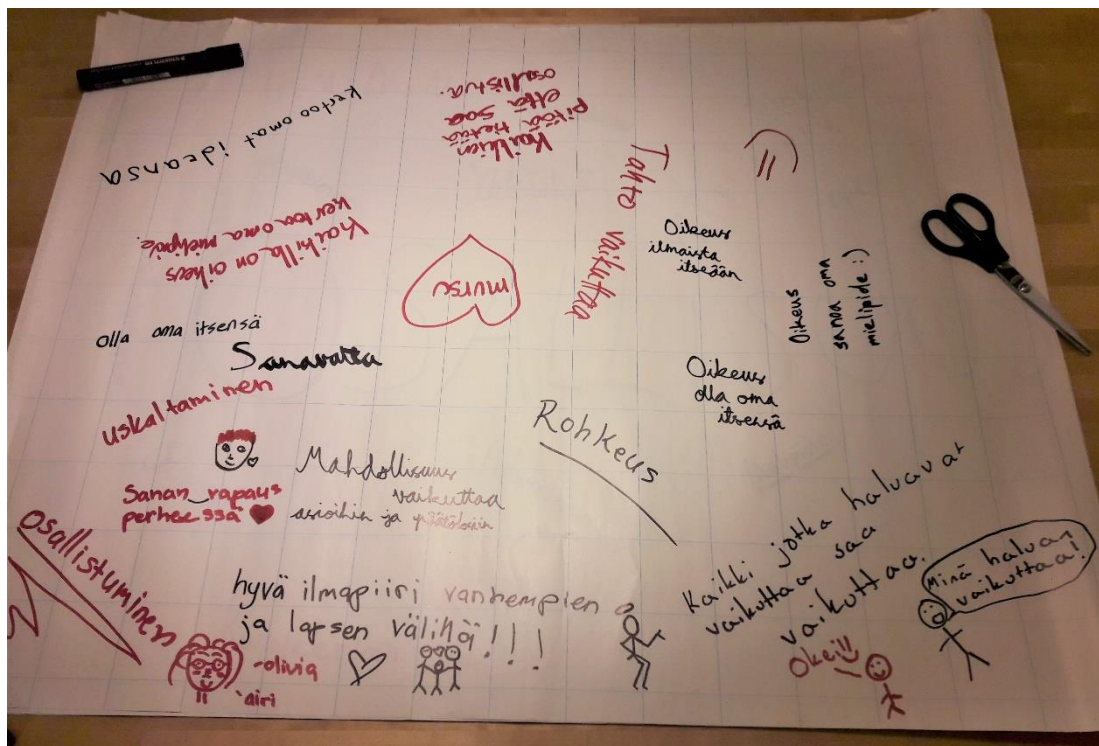 kertoo omat ideansa
Kaikkien
pitää tietää
että saa
osallistua.
Tahto vaikuttaa
Kaikilla on oikeus
kertoa oma mielipide.
mursu
Oikeus
ilmaista
itseään
Oikeus
sanoa oma
mielipide :)
Olla oma itsensä
Sanavalta
uskaltaminen
Oikeus
olla oma
itsensä
Rohkeus
Sanan_vapaus
perheessä
Mahdollisuus
vaikuttaa
asioihin ja päätöksiin
osallistuminen
hyvä ilmapiiri vanhempien
ja lapsen välillä!!!
-olivia
-airi
Kaikki jotka haluavat
vaikuttaa saa
vaikuttaa.
Minä haluan
vaikuttaa!
Okei!!